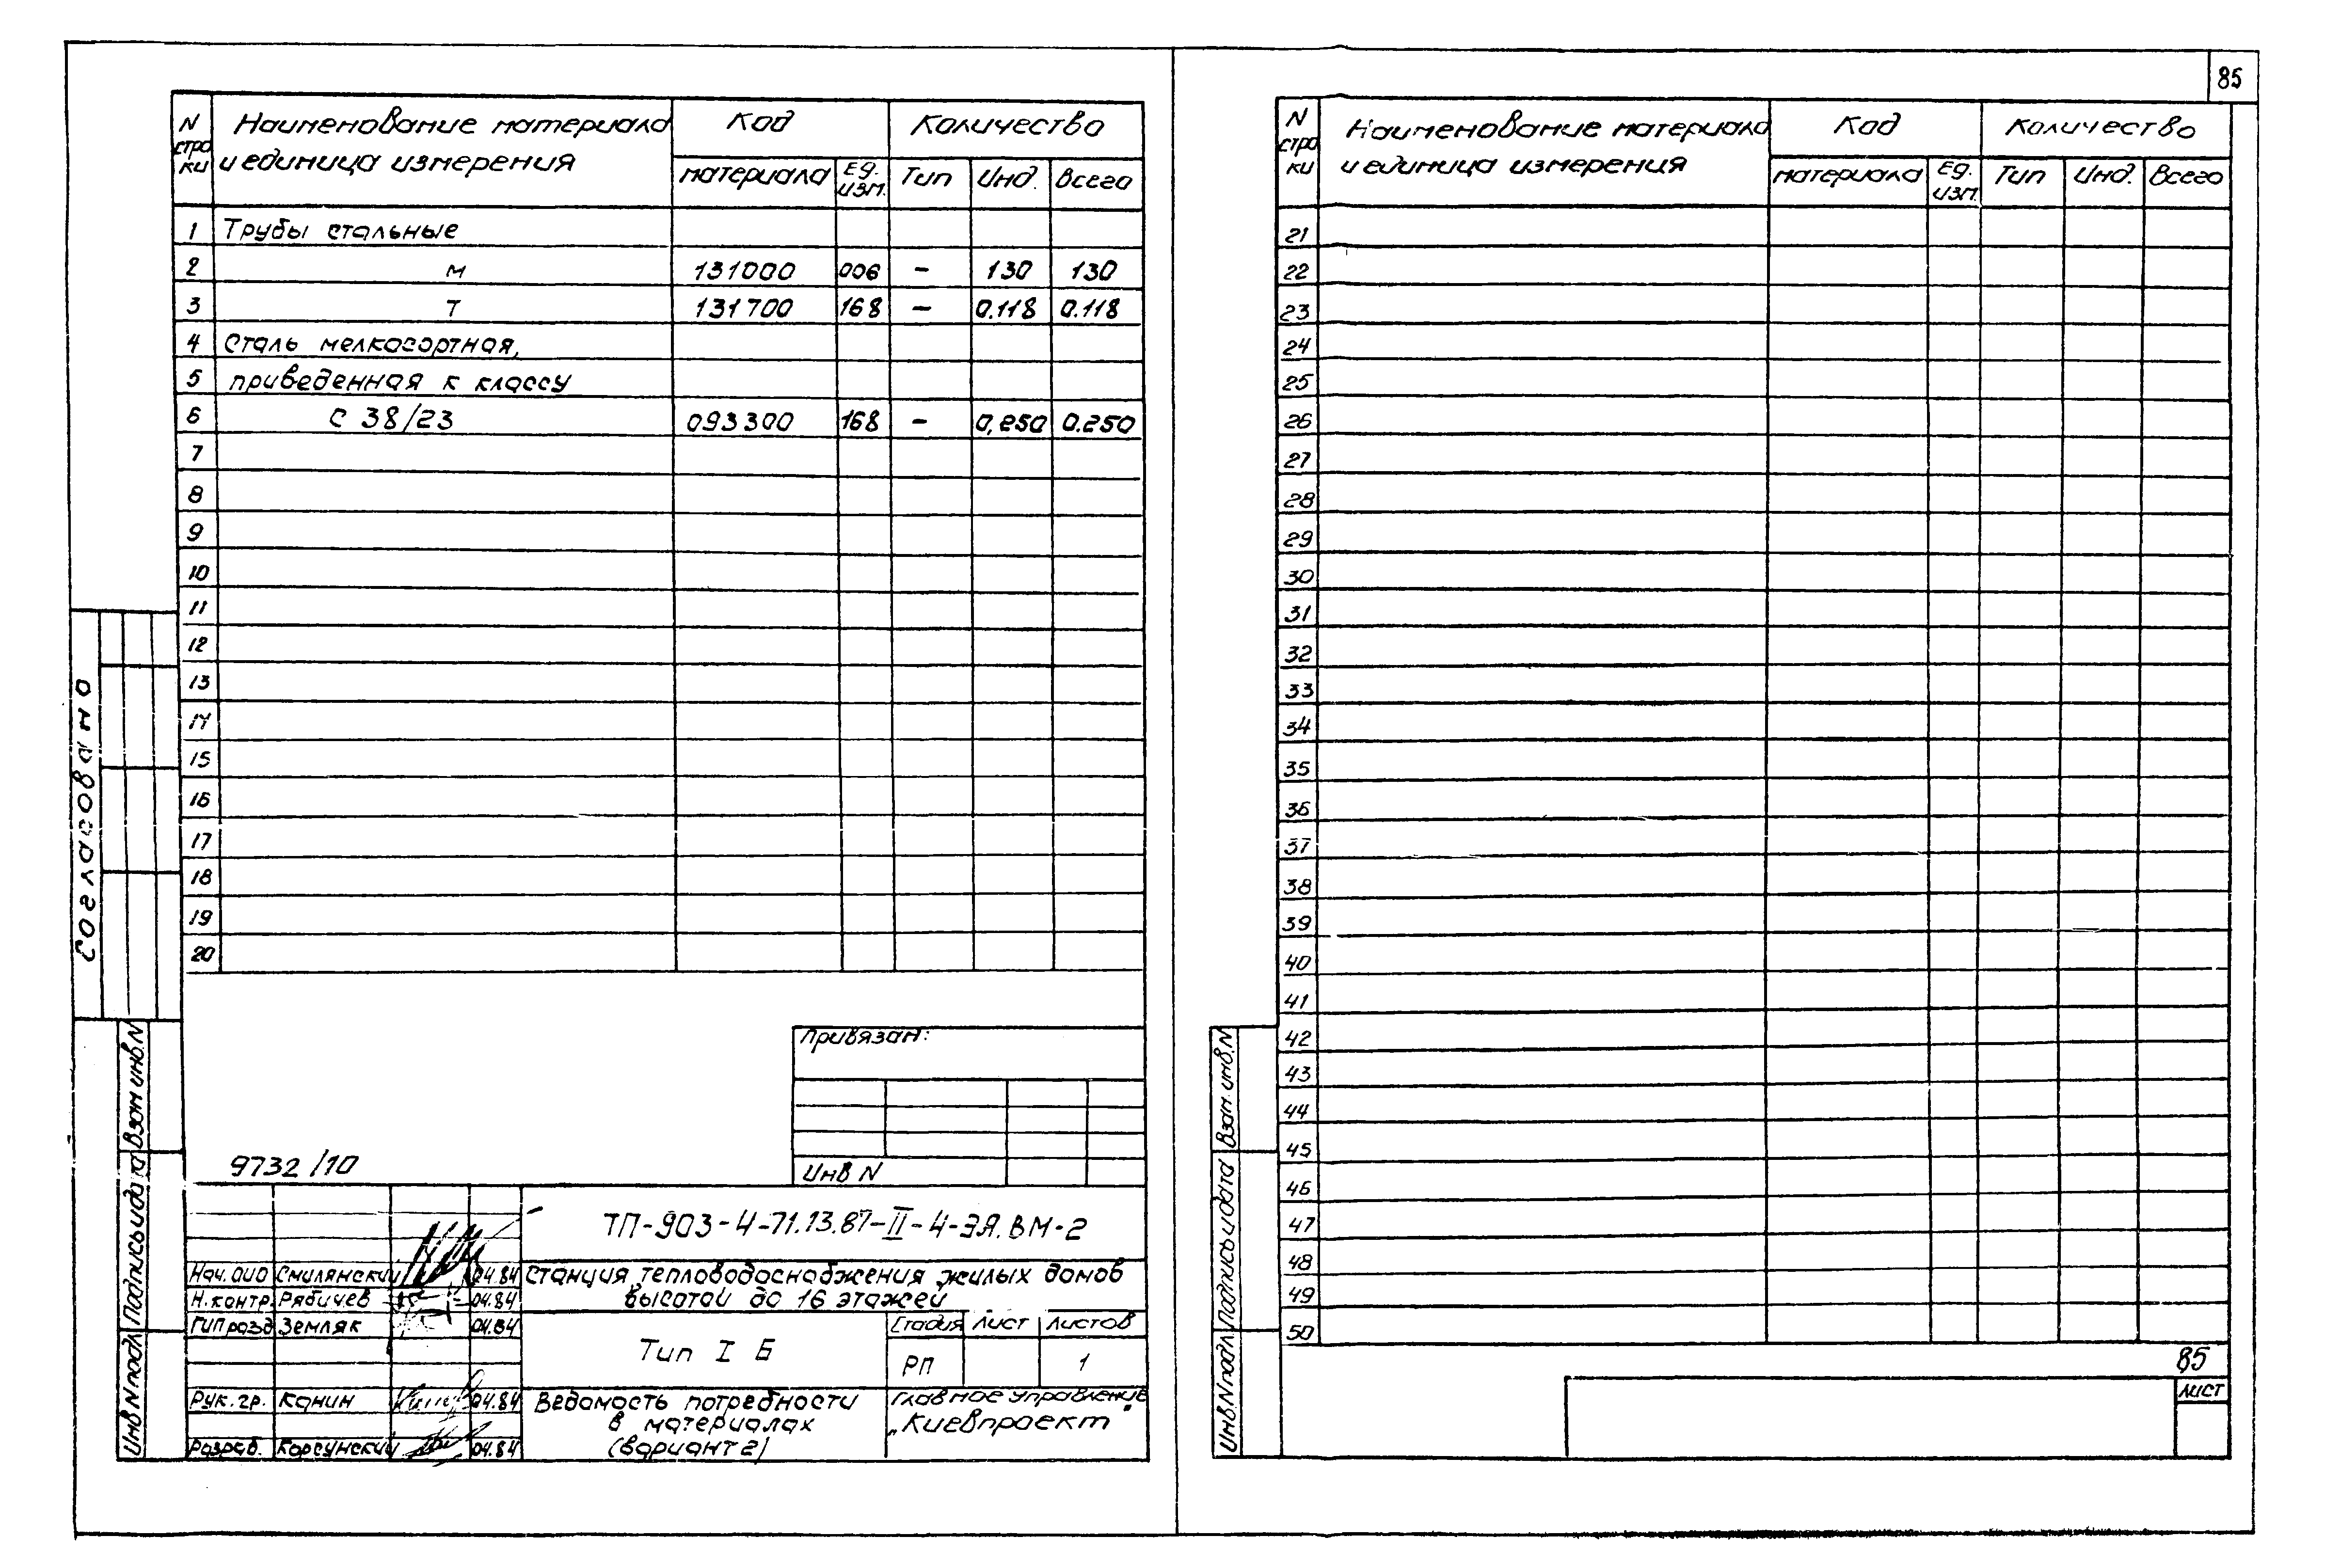 85
N стро ки Наименование материала и единица измерения Код Количество
материала Ед. изм. Тип Инд. Всего
1 Трубы стальные
2 м 131000 006 – 130 130
3 Т 131700 168 – 0.118 0.118
4 Сталь мелкосортная,
5 приведенная к классу
6 С 38/23 093300 168 – 0,250 0.250
7
8
9
10
11
12
13
14
15
16
17
18
19
20
Согласовано
Взам инв. N
Подпись и дата
Инв N подл
Привязан:
Инв N
9732/10
ТП-903-4-71.13.87-II-4-ЭЯ.ВМ-2
Нач. ОИО Смилянский 04.84
Н.контр. Рябичев 04.84
ГИП разд Земляк 04.84
Рук. гр. Канин 04.84
Разраб. Корсунский 04.84
Станция тепловодоснабжения жилых домов
высотой до 16 этажей
Тип I Б
Стадия Лист Листов
РП 1
Ведомость потребности
в материалах
(вариант 2)
Главное управление
„Киевпроект"
N стро ки Наименование материала и единица измерения Код Количество
материала Ед. изм. Тип Инд. Всего
21
22
23
24
25
26
27
28
29
30
31
32
33
34
35
36
37
38
39
40
41
42
43
44
45
46
47
48
49
50
Взам. инв. N
Подпись и дата
Инв N подл
85
Лист